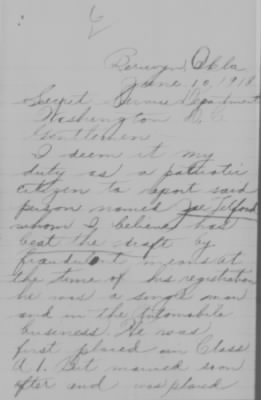 Berwyn, Okla
June 10, 1918
Secret Service Department
Washington D.C.
Gentlemen
I deem it my
duty as a patriotic
citizen to report said
person named Joe Telford
whom I believe has
beat the draft by
fraudulent means at
the time of his registration
he was a single man
and in the Automobile
business. He was
first placed in Class
A 1. But married soon
after and was placed